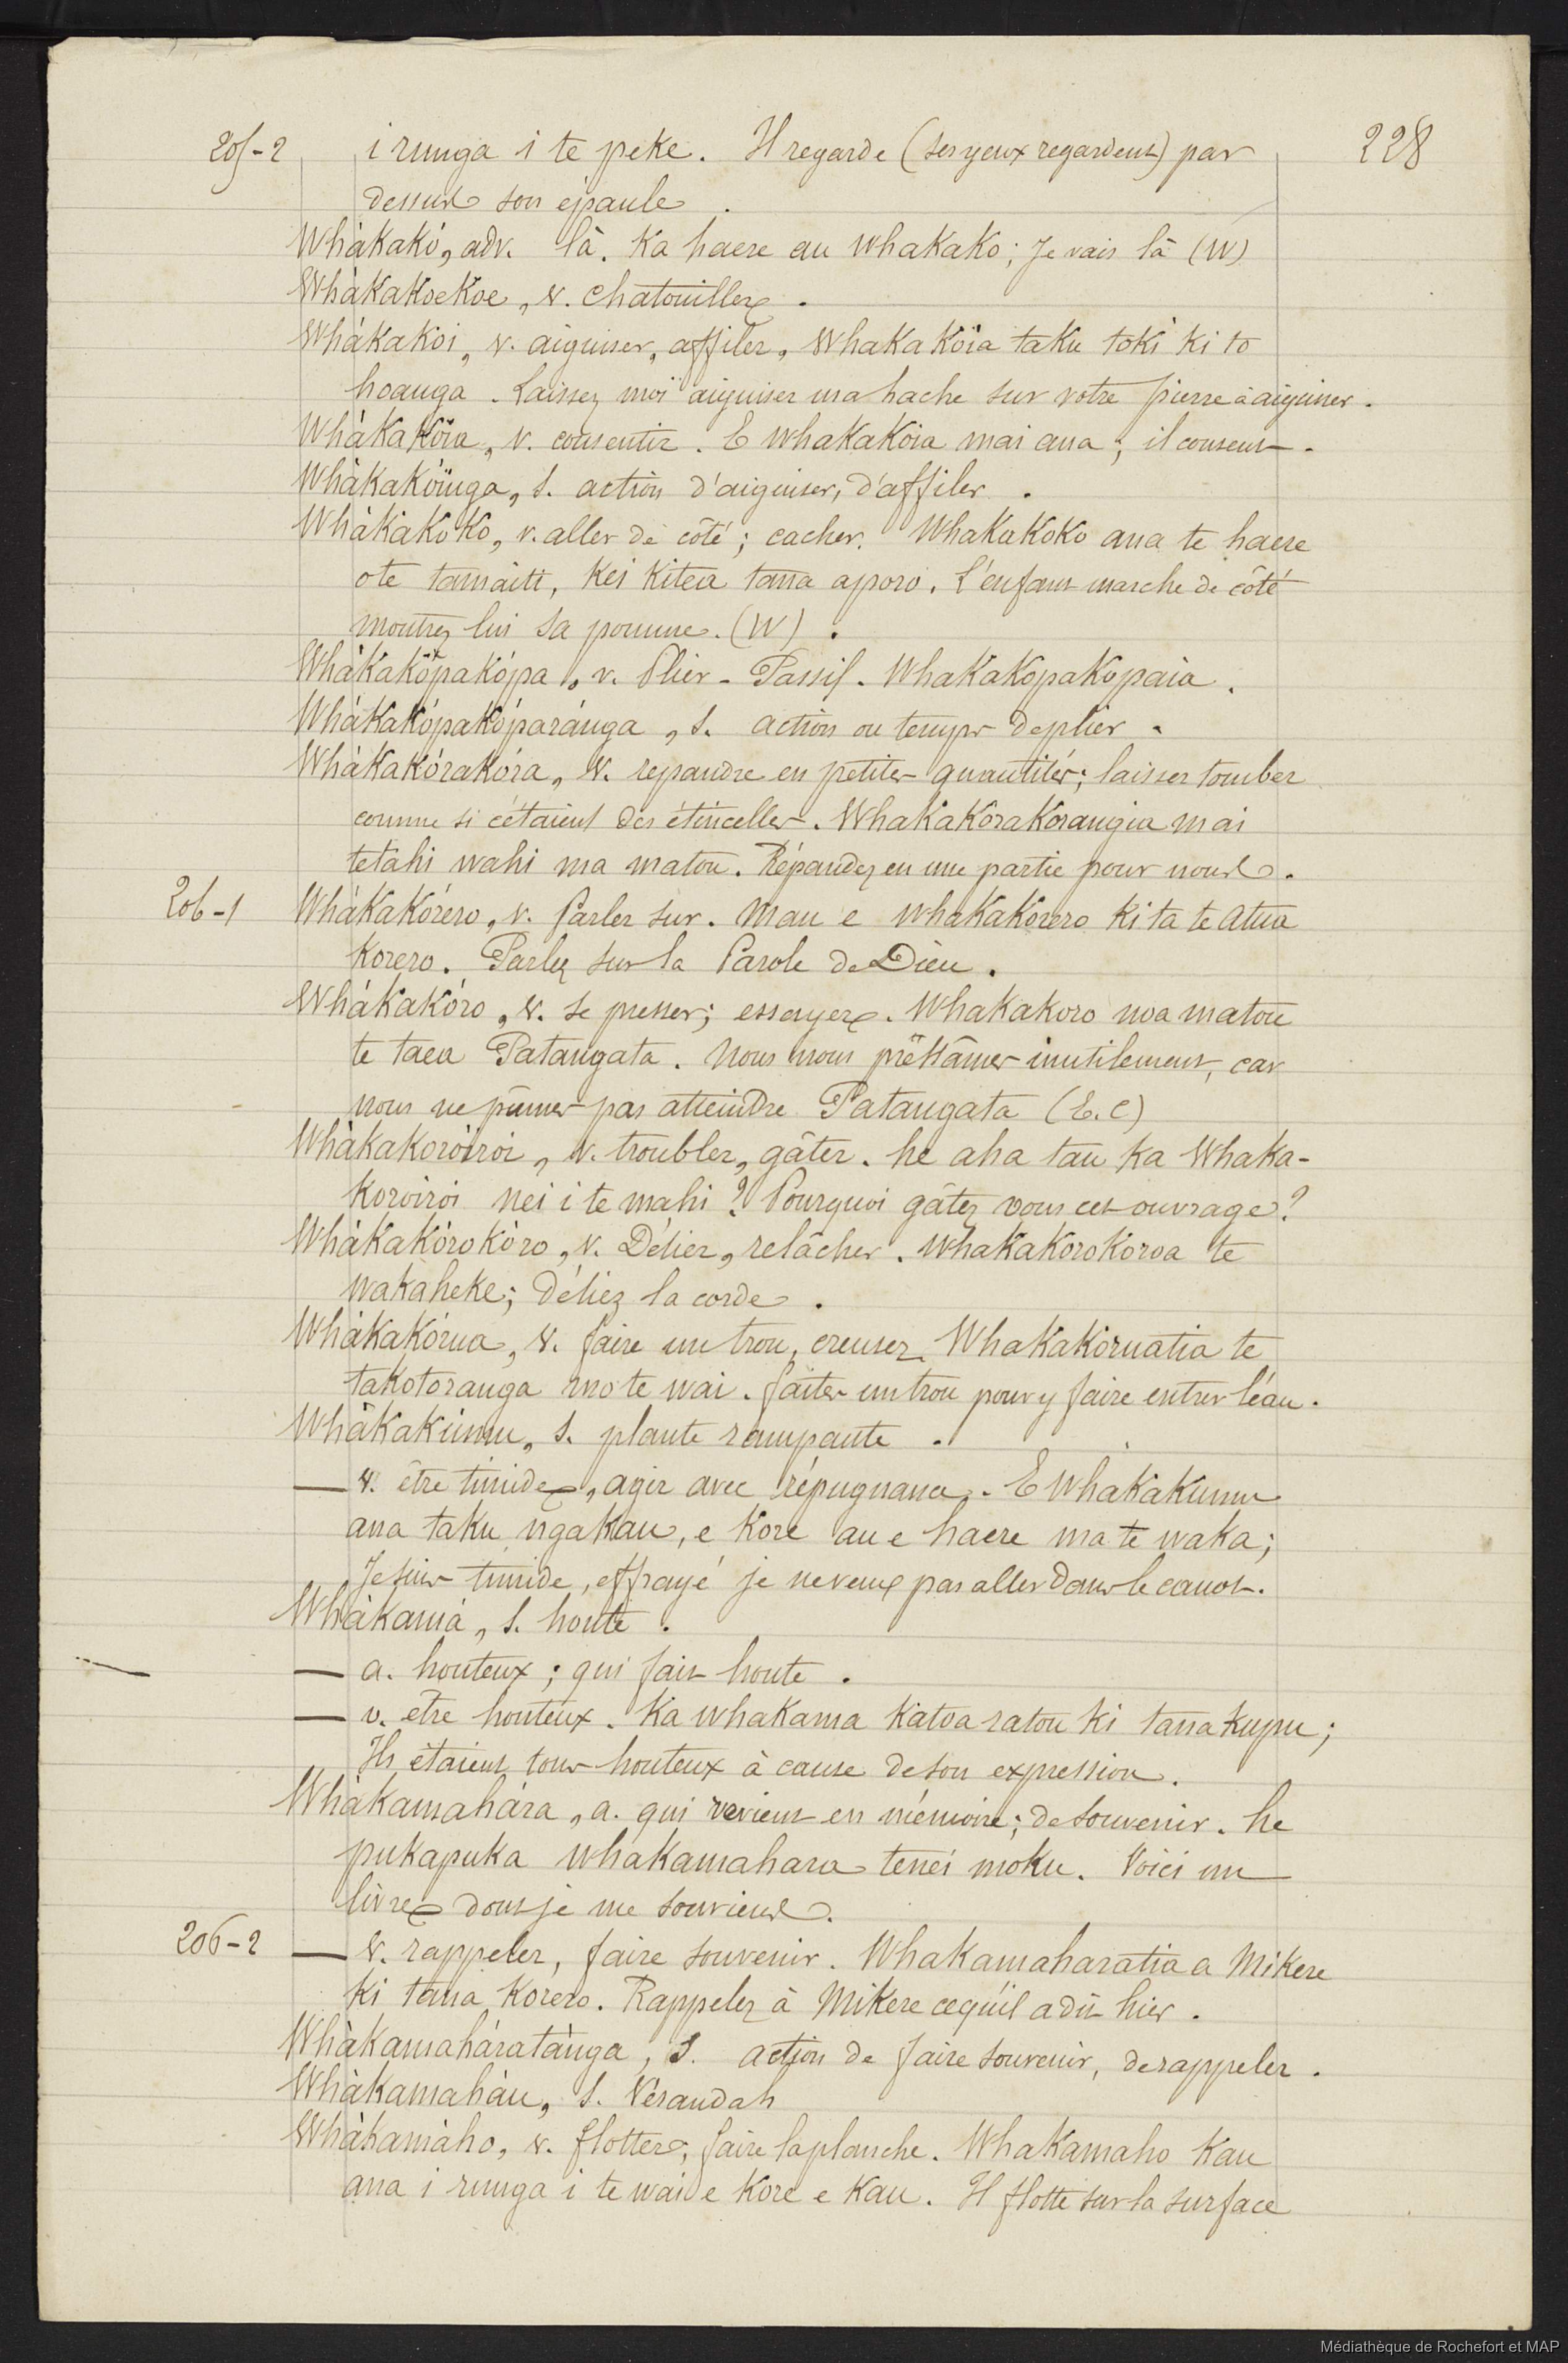 205-2 i runga i te peke. Il regarde (ses yeux regardent) par 228
dessus son épaule.
Whàkakó, adv. là. Ka haere au whakako; Je vais là (W)
Whàkakoekoe, v. chatouiller.
Whákakoi, v. aiguiser, affiler, Whakakoïa taku toki ki to
hoanga. Laissez moi aiguiser ma hache sur votre pierre à aiguiser.
Whàkakoïa, v. consentir. E whakakoia mai ana; il consent.
Whàkakóïnga, s. action d'aiguiser, d'affiler.
Whàkakoko, v. aller de côté; cacher. Whakakoko ana te haere
o te tamaiti, kei kitea tana aporo. L'enfant marche de côté
montrez lui sa pomme. (W).
Whàkakópakópa, v. Plier - Passif. Whakakopakopaia.
Whákakópakóparánga, s. action ou temps de plier.
Whàkakórakóra, v. repandre en petites quantités; laisser tomber
comme si c'étaient des étincelles. Whakakorakorangia mai
tetahi wahi ma matou. Répandez en une partie pour nous.
206-1 Whákakórero, v. Parler sur. Mau e whakakorero ki ta te Atua
korero. Parlez sur la Parole de Dieu.
Whákakóro, v. se presser; essayer. Whakakoro noa matou
te taea Patangata. Nous nous pressâmes inutilement, car
nous ne pûmes pas atteindre Patangata (E.C)
Whàkakoróiroi, v. troubler, gâter. he aha tau ka whaka-
koroiroi nei i te mahi? Pourquoi gâtez vous cet ouvrage?
Whàkakórokòro, v. Délier, relâcher. Whakakorokoroa te
wakaheke; déliez la corde.
Whàkakórua, v. faire un trou, creuser. Whakakoruatia te
takotoranga mo te wai. faites un trou pour y faire entrer l'eau.
Whàkakúmu, s. plante rampante.
— v. être timide, agir avec répugnance. E whakakumu
ana taku ngakau, e kore au e haere ma te waka;
Je suis timide, effrayé je ne veux pas aller dans le canot.
Whàkamá, s. honte.
— a. honteux; qui fait honte.
— v. être honteux. Ka whakama katoa ratou ki tana kupu;
Ils étaient tous honteux à cause de son expression.
Whàkamahára, a. qui revient en mémoire; de souvenir. he
pukapuka whakamahara tenei moku. Voici un
livre dont je me souviens.
206-2 — v. rappeler, faire souvenir. Whakamaharatia a Mikere
ki tana korero. Rappelez à Mikere ce qu'il a dit hier.
Whàkamaháratànga, s. action de faire souvenir, de rappeler.
Whàkamaháu, s. Vérandah
Whàkamàho, v. flotter, faire la planche. Whakamaho kau
ana i runga i te wai e kore e kau. Il flotte sur la surface
Médiathèque de Rochefort et MAP